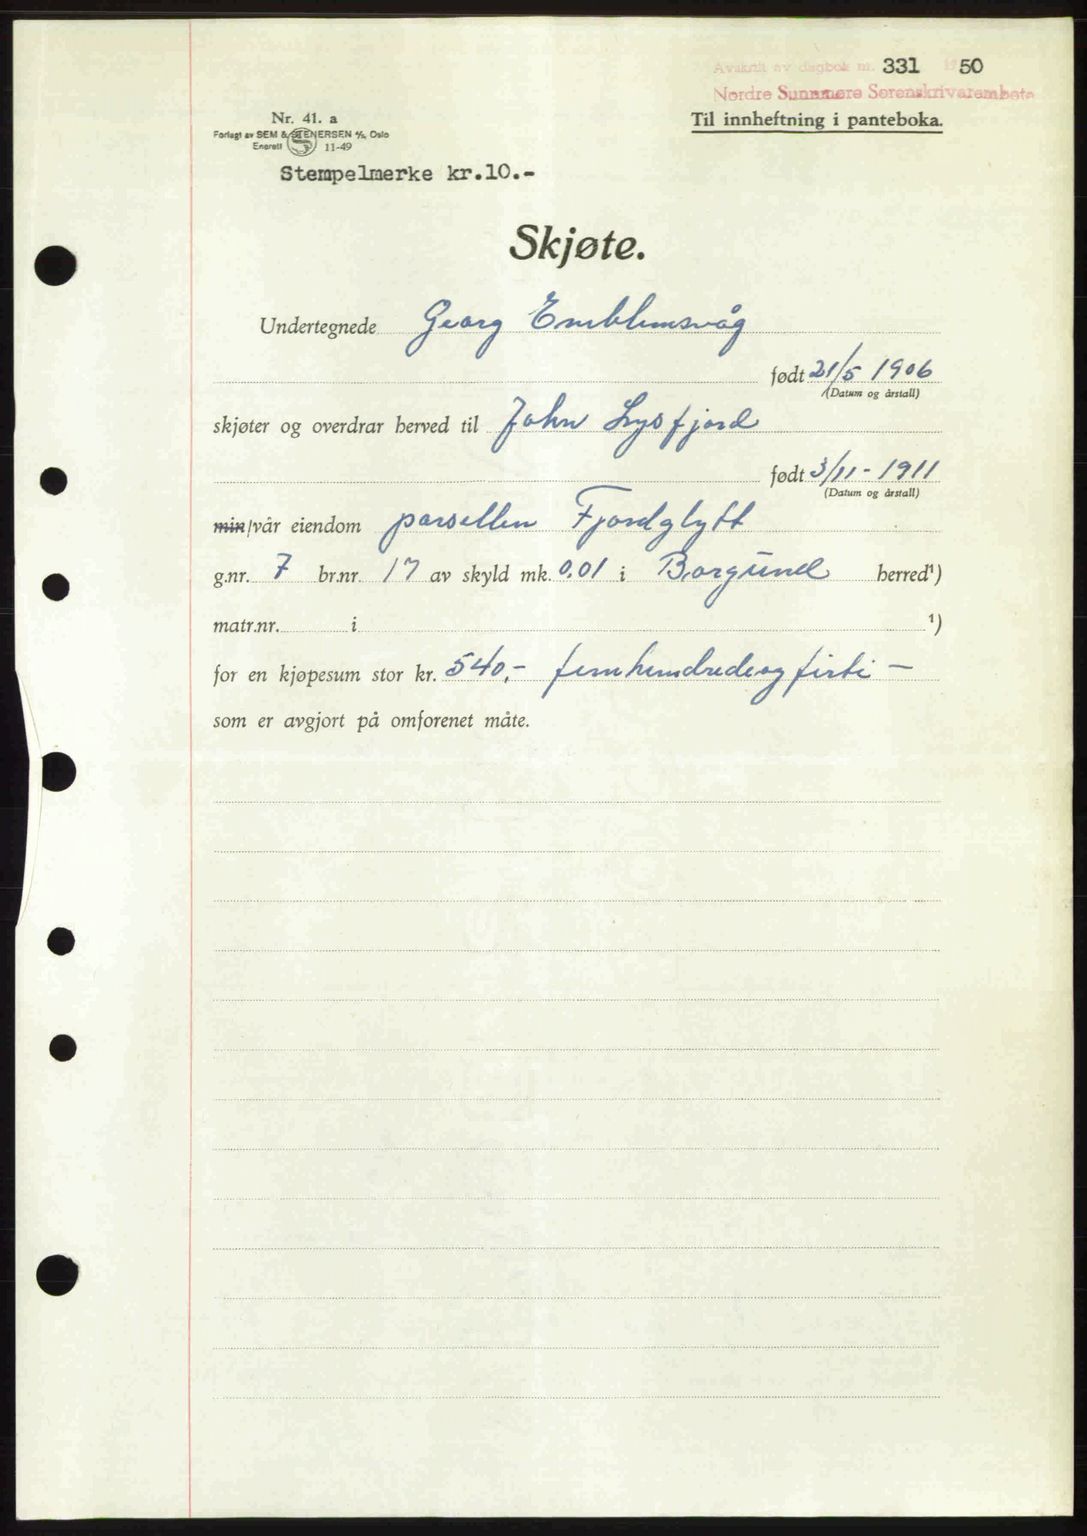 Avskrift av dagbok nr. 331 1950
Nordre Sunnmøre Sorenskrivarembete
Til innheftning i panteboka.
Nr. 41. a
Forlagt av SEM & STENERSEN A/S, Oslo
Enerett 11-49
Stempelmerke kr.10.-
Skjøte.
Undertegnede Georg Emblemsvåg
født 21/5 1906
(Datum og årstall)
skjøter og overdrar herved til John Lysfjord
født 3/11-1911
(Datum og årstall)
min/vår eiendom parsellen Fjordglytt
g.nr. 7 br.nr. 17 av skyld mk. 0,01 i Borgund herred¹)
matr.nr. i ¹)
for en kjøpesum stor kr. 540,- femhundredeogførti —
som er avgjort på omforenet måte.